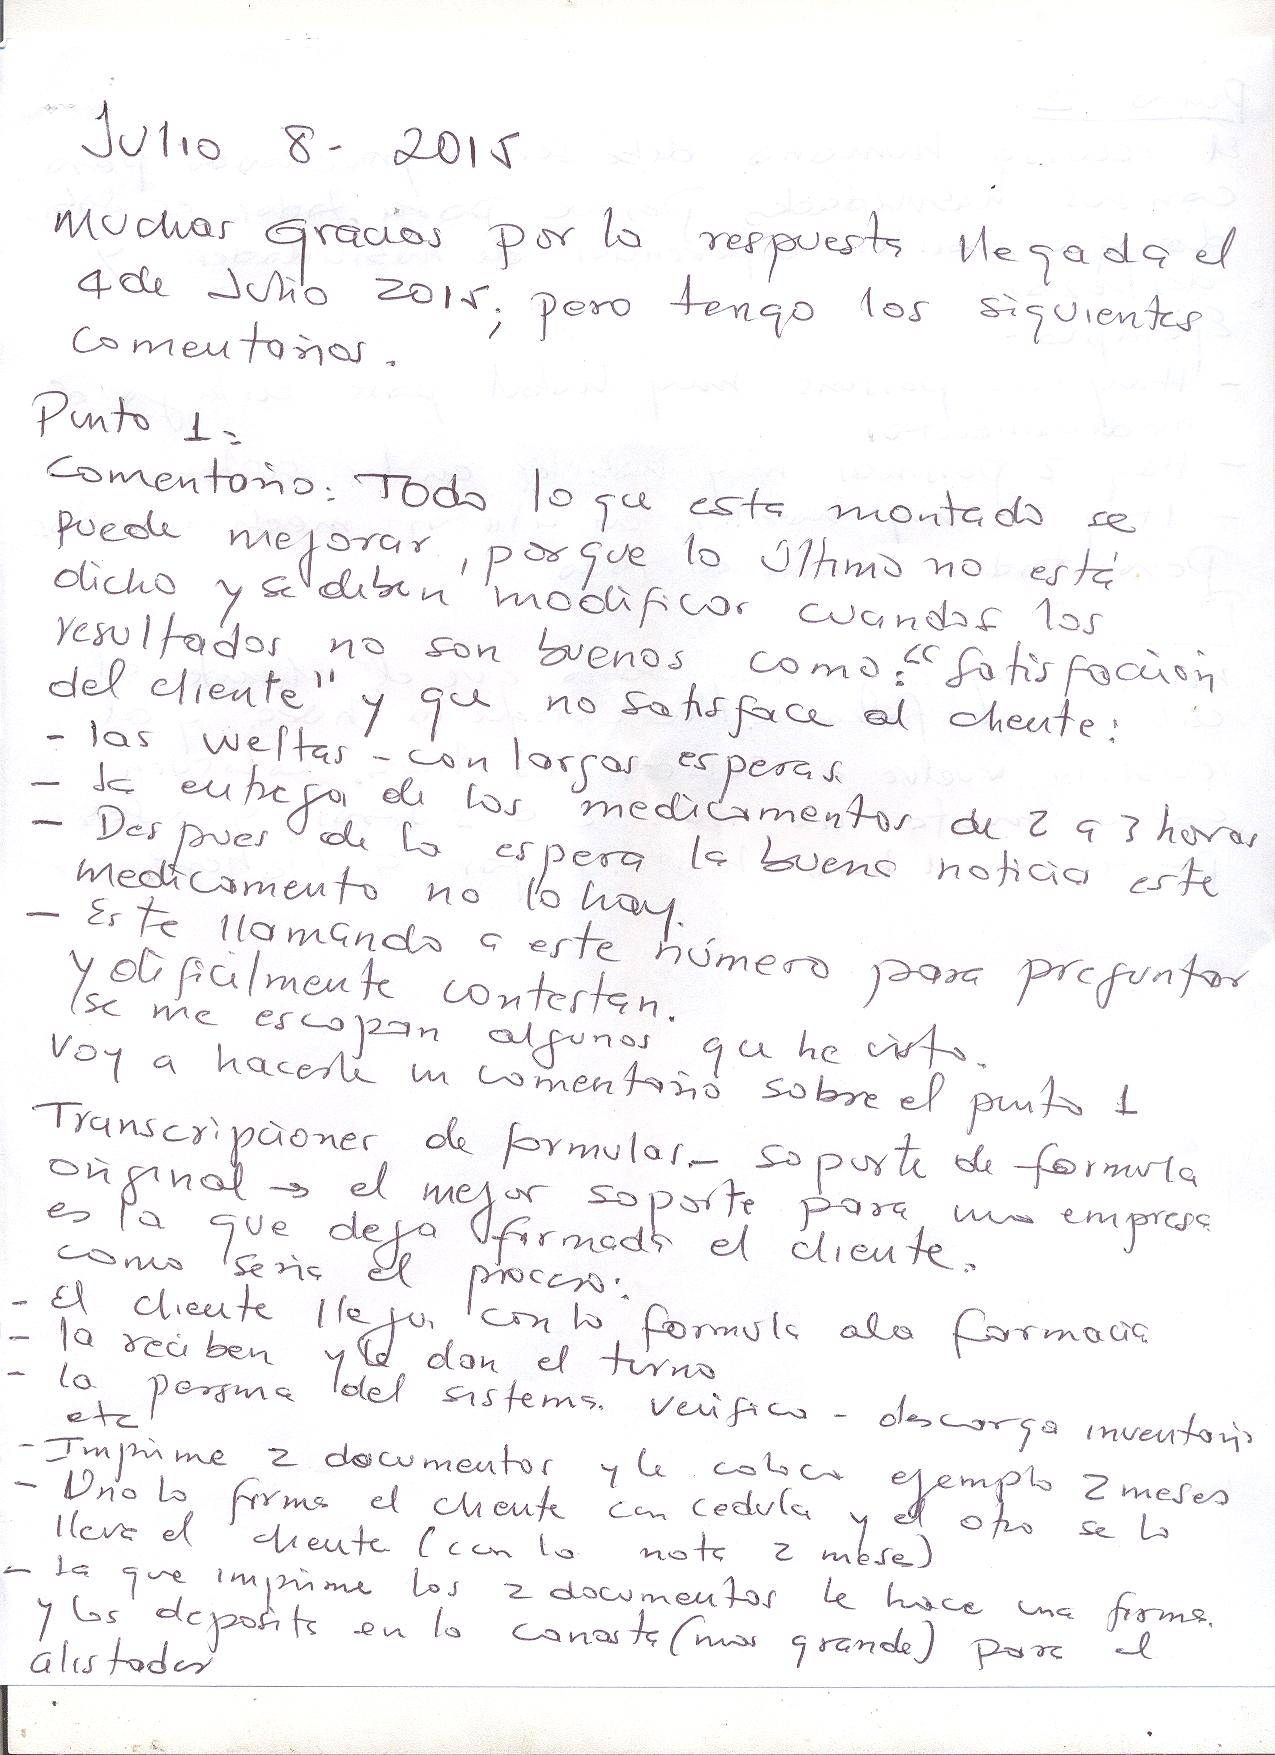 Julio 8 - 2015
Muchas gracias por la respuesta llegada el
4 de Julio 2015; pero tengo los siguientes
comentarios.
Punto 1:
Comentario: Todo lo que esta montado se
puede mejorar, porque lo último no está
dicho y se deben modificar cuandos los
resultados no son buenos como: "Satisfacción
del cliente" y que no satisface al cliente:
- las vueltas - con largas esperas.
- la entrega de los medicamentos de 2 a 3 horas
- Despues de la espera la buena noticia este
medicamento no lo hay.
- Este llamando a este número para preguntar
y dificilmente contestan.
se me escapan algunos que he visto.
Voy a hacerle un comentario sobre el punto 1
Transcripciones de formulas. - soporte de formula
original → el mejor soporte para una empresa
es la que deja firmada el cliente.
como seria el proceso:
- El cliente llega con la formula a la farmacia
- la reciben y le dan el turno
- la persona del sistema verifica - descarga inventario
etc
- Imprime 2 documentos y le coloca ejemplo 2 meses
- Uno lo firma el cliente con cedula y el otro se lo
lleva el cliente (con la nota 2 mese)
- La que imprime los 2 documentos le hace una firma
y los deposita en la canasta (mas grande) para el
alistador